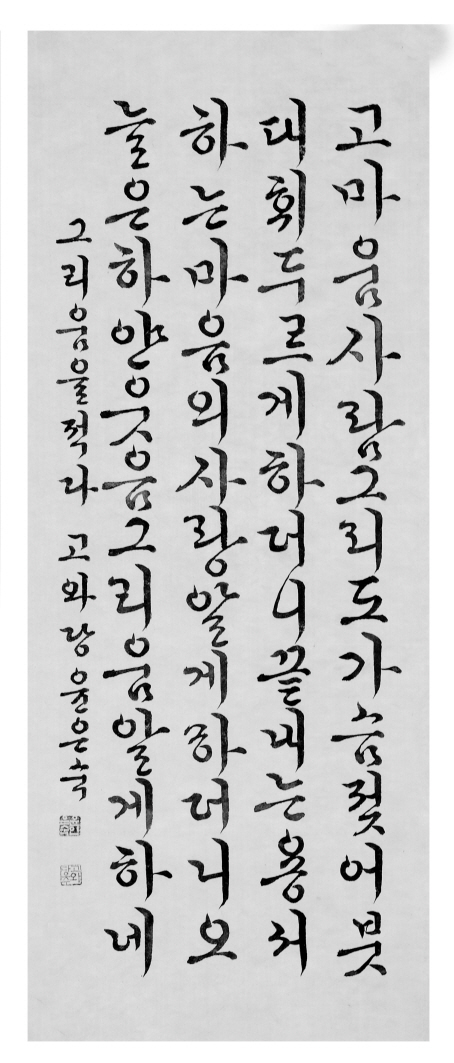 고마움사람그리도가슴젖어붓
대휘두르게하더니끝내는용서
하는마음의사랑알게하더니오
늘은하얀웃음그리움알게하네
그리움을적다 고와당윤은숙